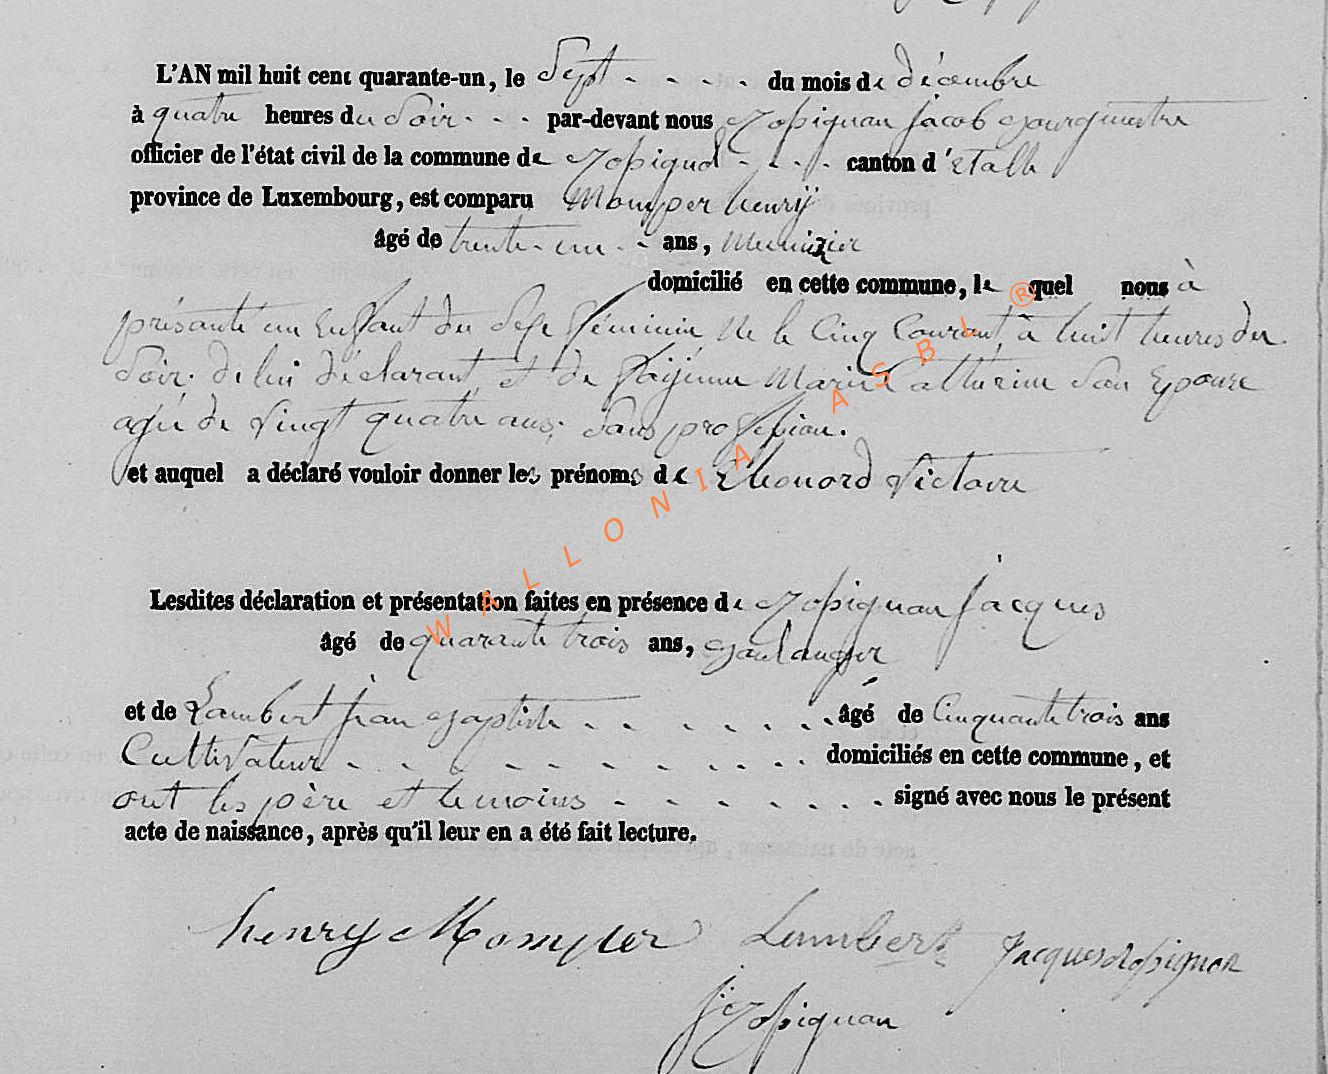 L'AN mil huit cent quarante-un, le Sept - - - - du mois de décembre
à quatre heures du Soir - - - par-devant nous Rossignon Jacob Bourgmestre
officier de l'état civil de la commune de Rossignol - - - canton d'Etalle
province de Luxembourg, est comparu Momper henrÿ
âgé de trente-un - - ans, Meunizier
domicilié en cette commune, lequel nous à
présanté un Enfant du Sexe féminin Né le Cinq Courant, à huit heures du
Soir. de lui déclarant, et de Marie Catherine Son Epouse
agée de Vingt quatre ans, Sans profession.
et auquel a déclaré vouloir donner les prénoms de Victoire
Lesdites déclaration et présentation faites en présence de Rossignon Jacques
âgé de quarante trois ans, Boulanger
et de Lambert Jean Baptiste - - - - - - - âgé de Cinquante trois ans
Cultivateur - - - - - - - - - - domiciliés en cette commune, et
ont les père et temoins - - - - - - - signé avec nous le présent
acte de naissance, après qu'il leur en a été fait lecture.
henry Momper Lambert Jacques Rossignon
J Rossignon
WALLONIA ASBL ®